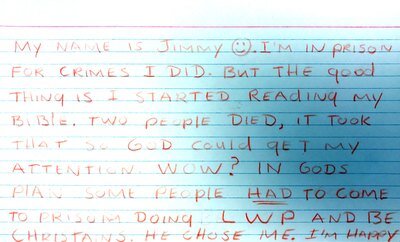 MY NAME IS JIMMY ☺. I'M IN PRISON
FOR CRIMES I DID. BUT THE GOOD
THING IS I STARTED READING MY
BIBLE. TWO PEOPLE DIED, IT TOOK
THAT SO GOD COULD GET MY
ATTENTION WOW? IN GODS
PLAN SOME PEOPLE HAD TO COME
TO PRISON DOING LWP AND BE
CHRISTANS. HE CHOSE ME. I'M HAPPY